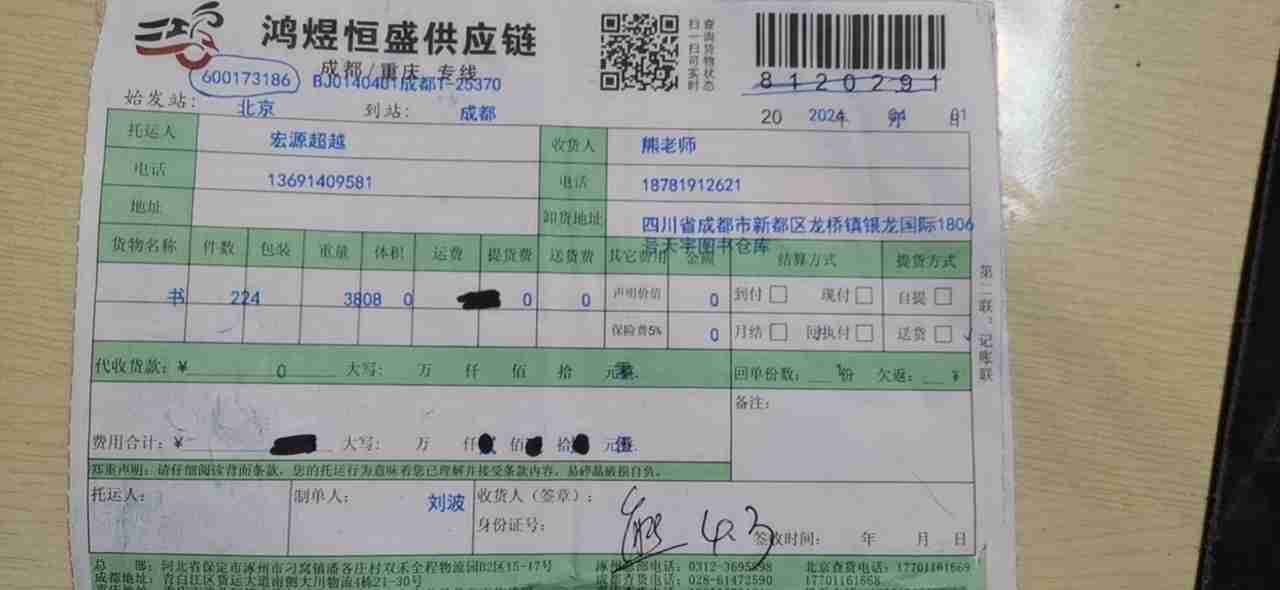 鸿煜恒盛供应链
成都/重庆 专线
扫一扫可实时
查询货物状态
8120291
600173186 BJ0140401成都T-25370
始发站: 北京 到站: 成都 20 2024年 月 01日
托运人 宏源超越 收货人 熊老师
电话 13691409581 电话 18781912621
地址 卸货地址 四川省成都市新都区龙桥镇银龙国际1806
号天宇图书仓库
货物名称 件数 包装 重量 体积 运费 提货费 送货费 其它费用 金额 结算方式 提货方式
书 224 3808 0 0 0 声明价值 0 到付 现付 自提
保险费5% 0 月结 回执付 送货
第二联：记账联
代收货款: ¥ 0 大写: 万 仟 佰 拾 元 回单份数: 份 欠返: ¥
备注:
费用合计: ¥ 大写: 万 仟 佰 拾 元
郑重声明: 请仔细阅读背面条款, 您的托运行为意味着您已理解并接受条款内容, 易碎品破损自负.
托运人: 制单人: 刘波 收货人（签章）: 熊 4.3
身份证号: 签收时间: 年 月 日
总 部: 河北省保定市涿州市刁窝镇潘各庄村双禾全程物流园D2区15-17号 涿州总部电话: 0312-3695898 北京查货电话: 17701161669
成都地址: 青白江区货运大道南侧大川物流4栋21-30号 成都查货电话: 028-61472590 17701161668